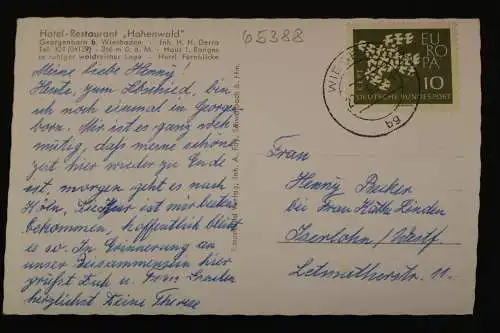 Hotel-Restaurant „Hohenwald"
Georgenborn b. Wiesbaden - Inh. H. H. Derra
in ruhiger waldreicher Lage - Herrl. Fernblicke
65388
EUROPA
CEPT
10
DEUTSCHE BUNDESPOST
WIES
Meine liebe Henny!
Heute, zum Abschied, bin
ich noch einmal in Georgen
born. Mir ist ganz weh
mütig, daß meine schöne
Zeit hier wieder zu Ende
ist, morgen geht es nach
Köln, ist mir bestens
bekommen, hoffentlich bleibt
es so. In Erinnerung an
unser Zusammensein hier
grüßt Dich u. Frau
herzlichst Deine Therese
Frau
Henny Becker
bei Frau Käthe Linden
Iserlohn/Westf.
Letmatherstr. 11.